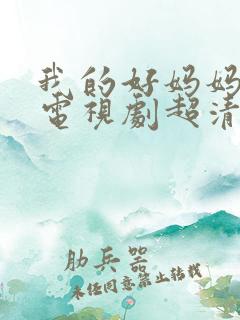 我的好妈妈
電視劇超清
肋兵器
未任同意禁止转载